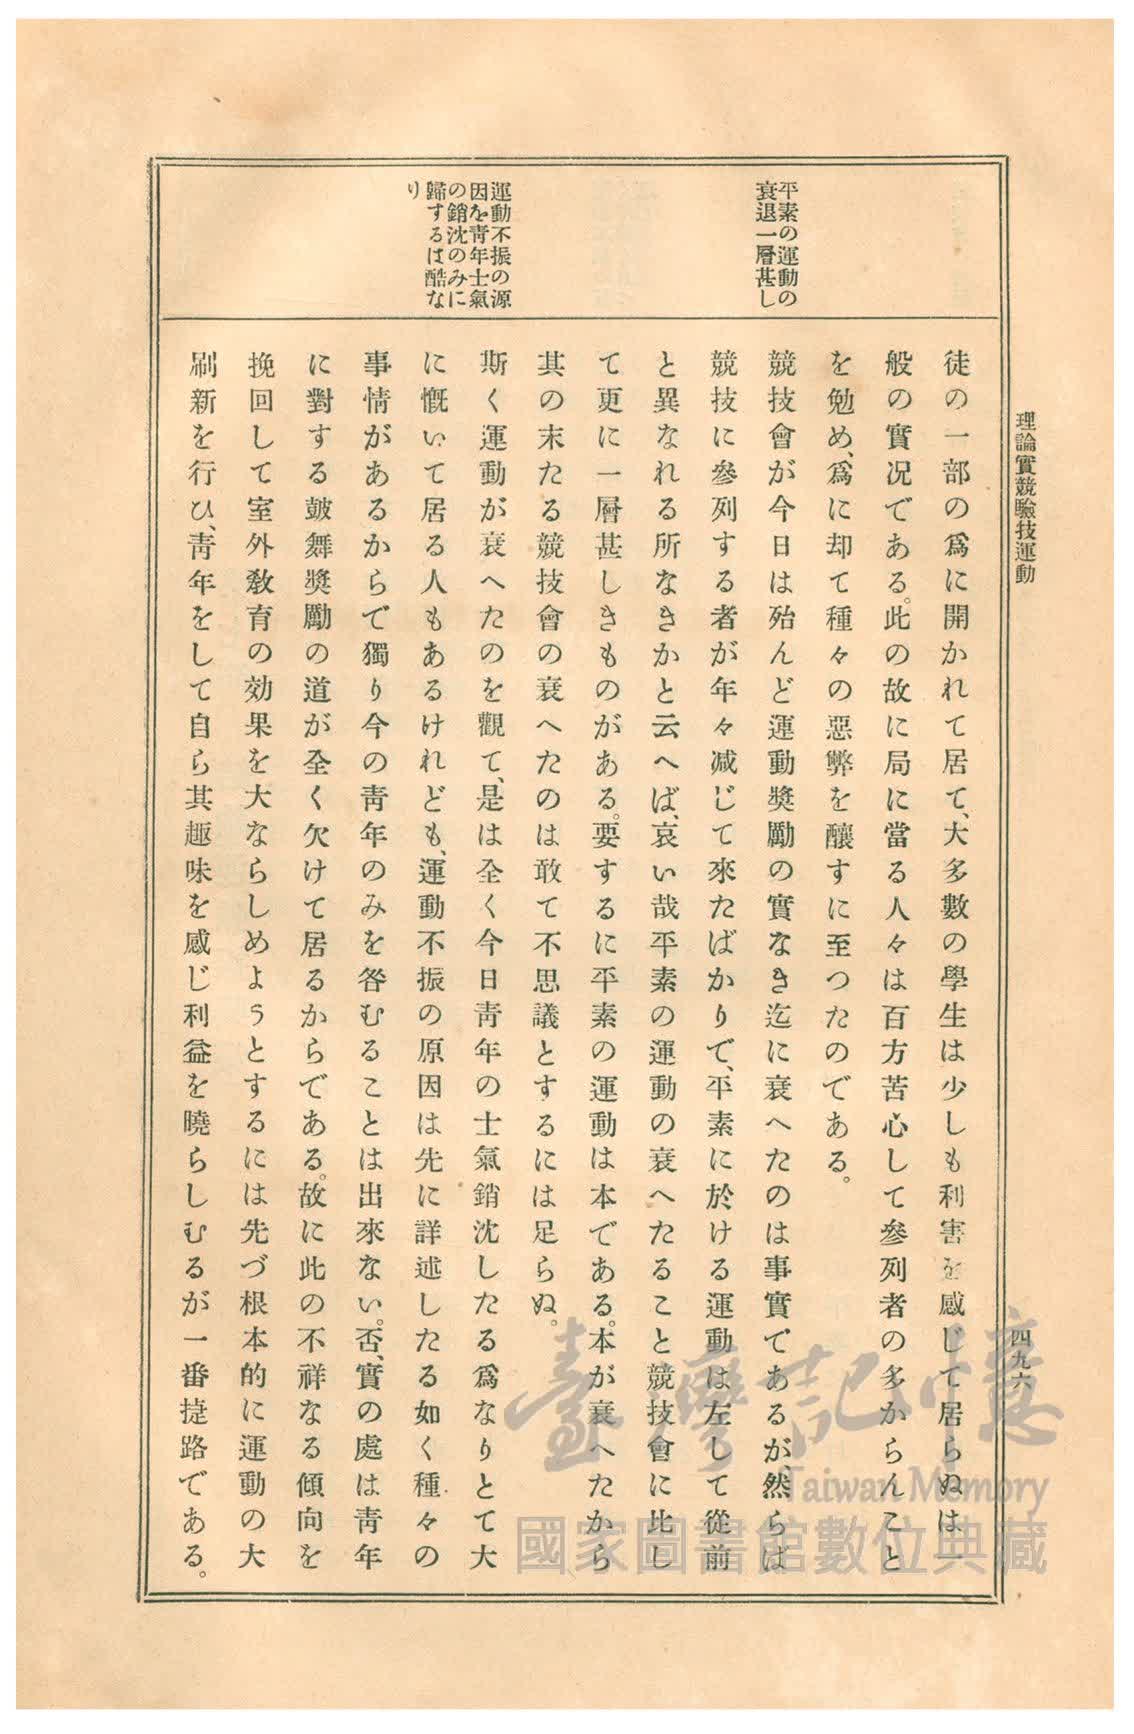 理論實驗競技運動
四九六
平素の運動の
衰退一層甚し
運動不振の源
因を靑年士氣
の銷沈のみに
歸するは酷な
り
徒の一部の爲に開かれて居て、大多數の學生は少しも利害を感じて居らぬは一
般の實况である。此の故に局に當る人々は百方苦心して參列者の多からんこと
を勉め、爲に却て種々の惡弊を釀すに至つたのである。
競技會が今日は殆んど運動奬勵の實なき迄に衰へたのは事實であるが、然らば
競技に參列する者が年々减じて來たばかりで、平素に於ける運動は左して從前
と異なれる所なきかと云へば、哀い哉平素の運動の衰へたること競技會に比し
て更に一層甚しきものがある。要するに平素の運動は本である。本が衰へたから
其の末たる競技會の衰へたのは敢て不思議とするには足らぬ。
斯く運動が衰へたのを觀て、是は全く今日靑年の士氣銷沈したる爲なりとて大
に慨いて居る人もあるけれども、運動不振の原因は先に詳述したる如く種々の
事情があるからで獨り今の靑年のみを咎むることは出來ない。否、實の處は靑年
に對する皷舞奬勵の道が全く欠けて居るからである。故に此の不祥なる傾向を
挽回して室外敎育の効果を大ならしめようとするには先づ根本的に運動の大
刷新を行ひ、靑年をして自ら其趣味を感じ利益を曉らしむるが一番捷路である。
臺灣記憶
Taiwan Memory
國家圖書館數位典藏